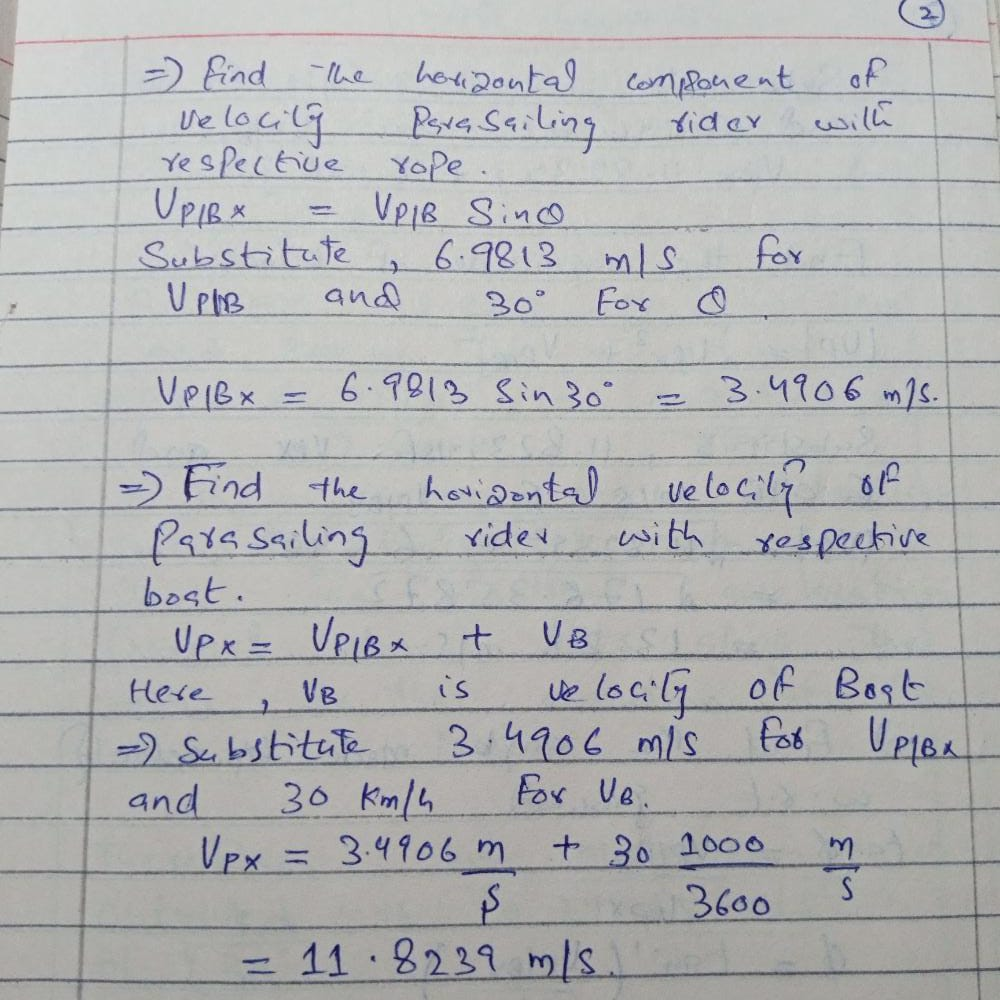 2
⇒ Find the horizontal component of
velocity Parasailing rider with
respective rope.
VP/Bx = VP/B Sinθ
Substitute, 6.9813 m/s for
VP/B and 30° For θ
VP/Bx = 6.9813 Sin 30° = 3.4906 m/s.
⇒ Find the horizontal velocity of
Parasailing rider with respective
boat.
VPx = VP/Bx + VB
Here, VB is velocity of Boat
⇒ Substitute 3.4906 m/s for VP/Bx
and 30 Km/h For VB.
VPx = 3.4906 m/s + 30 1000/3600 m/s
= 11.8239 m/s.